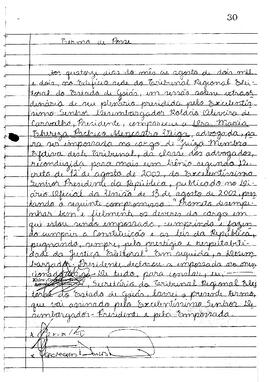 30
Termo de Posse
Aos quatorze dias do mês de agosto de dois mil
e dois, no Edifício sede do Tribunal Regional Elei-
toral do Estado de Goiás, em sessão extraor
dinária de seu plenário presidida pelo Excelentís-
simo Senhor Desembargador Roldão Oliveira de
Carvalho, Presidente, compareceu a Dra. Maria
Thereza Pacheco Alencastro Veiga, advogada, pa-
ra ser empossada no cargo de Juíza Membro
Efetiva deste Tribunal, da classe dos advogados,
reconduzida para mais um biênio segundo De-
creto de 12 de agosto de 2002, do Excelentíssimo
Senhor Presidente da República, publicado no
Diário Oficial da União de 13 de agosto de 2002, pres-
tando o seguinte compromisso: "Prometo desempe-
nhar bem e fielmente os deveres do cargo em
que estou sendo empossada, cumprindo e fazen-
do cumprir a Constituição e as leis da República,
pugnando, sempre, pelo prestígio e respeitabili-
dade da Justiça Eleitoral". Em seguida, o Desem-
bargador Presidente declarou a empossada no
cargo. Eu tudo, para constar, eu
Secretária do Tribunal Regional Elei-
toral do Estado de Goiás, lavrei o presente termo,
que vai assinado pelo Excelentíssimo Senhor De-
sembargador-Presidente e pela Empossada.